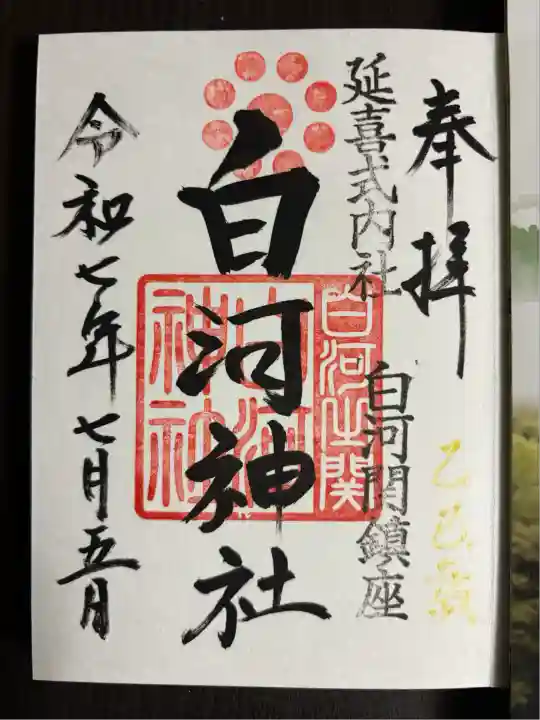 奉拝
乙巳歳
延喜式内社 白河関鎮座
白河神社
白河之関
白河神社
令和七年七月五日